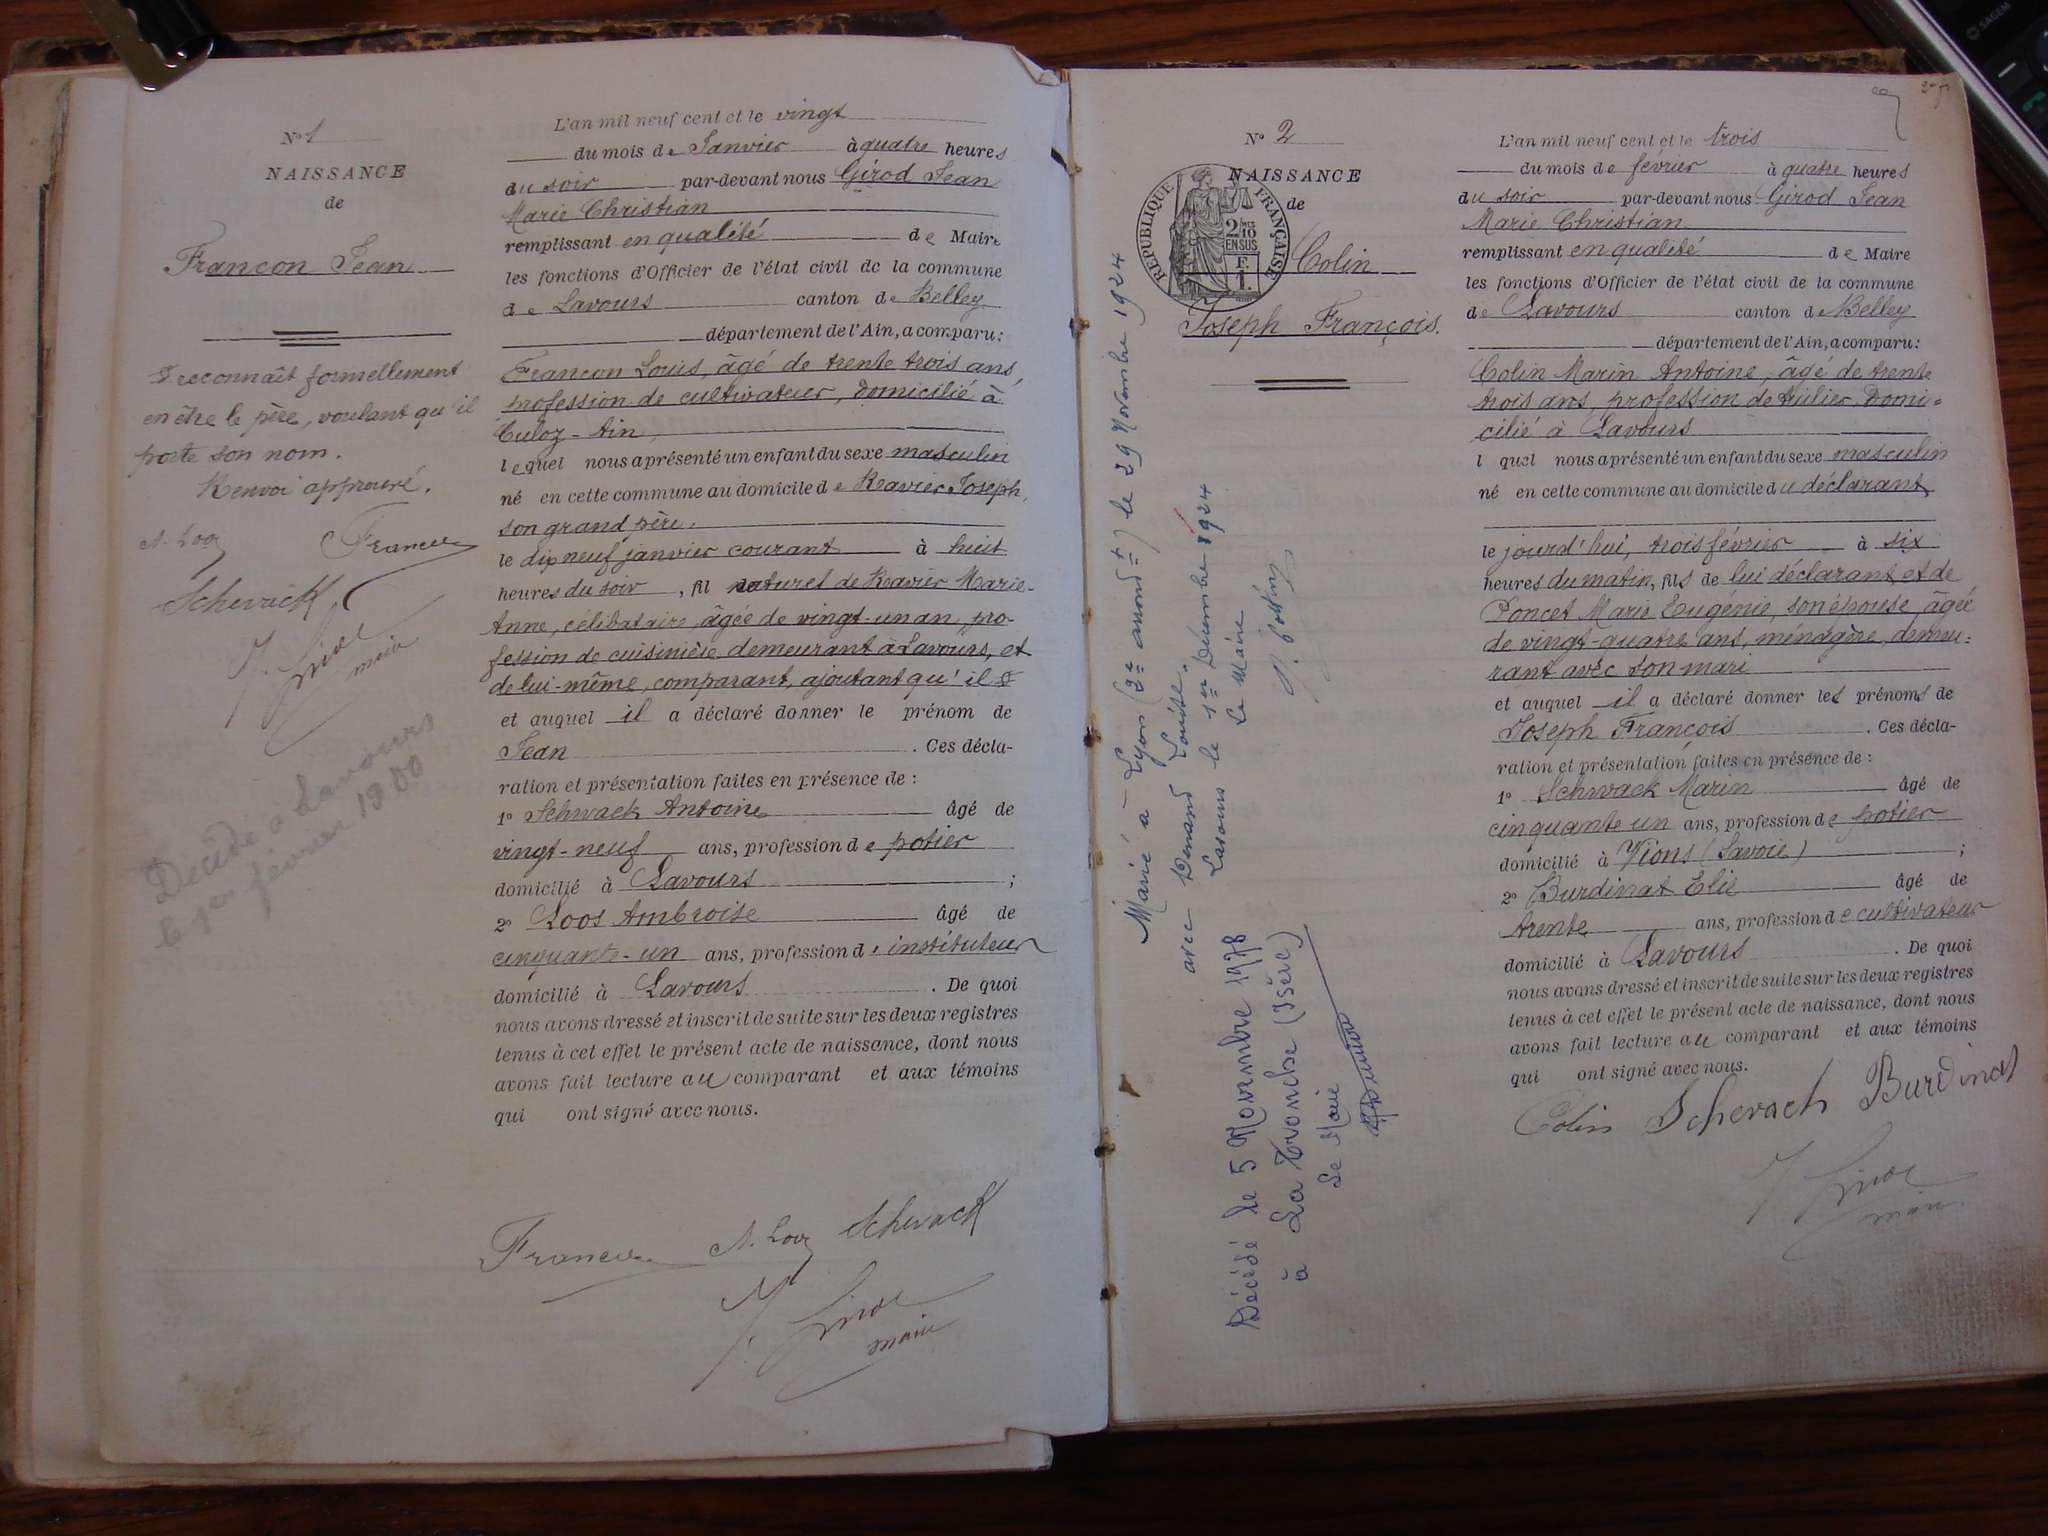 N° 1
NAISSANCE
de
Francon Jean
& reconnaît formellement
en être le père, voulant qu'il
porte son nom.
Renvoi approuvé.
A. Loos Francon
Schwack
J. Girod
maire
Décédé à Lavours
le 1er février 1900
L'an mil neuf cent et le vingt
du mois de Janvier à quatre heures
du soir par-devant nous Girod Jean
Marie Christian
remplissant en qualité de Maire
les fonctions d'Officier de l'état civil de la commune
de Lavours canton de Belley
département de l'Ain, a comparu:
Francon Louis, âgé de trente trois ans,
profession de cultivateur, domicilié à
Culoz-Ain,
lequel nous a présenté un enfant du sexe masculin
né en cette commune au domicile de Ravier Joseph,
son grand père.
le dix neuf janvier courant à huit
heures du soir, fil naturel de Ravier Marie-
Anne, célibataire, âgée de vingt-un an, pro-
fession de cuisinière demeurant à Lavours, et
de lui-même, comparant, ajoutant qu'il &
et auquel il a déclaré donner le prénom de
Jean. Ces décla-
ration et présentation faites en présence de :
1° Schwack Antoine âgé de
vingt-neuf ans, profession de potier
domicilié à Lavours ;
2° Loos Ambroise âgé de
cinquante-un ans, profession de instituteur
domicilié à Lavours. De quoi
nous avons dressé et inscrit de suite sur les deux registres
tenus à cet effet le présent acte de naissance, dont nous
avons fait lecture au comparant et aux témoins
qui ont signé avec nous.
Francon A. Loos Schwack
J. Girod
maire
N° 2
NAISSANCE
de
RÉPUBLIQUE FRANÇAISE
2/10
EN SUS
F.
1.
Colin
Joseph François.
Marié à Lyon (2e arrondt) le 29 Novembre 1924
avec Louise.
Lavours le 1er Décembre 1924
Le Maire
Décédé le 5 Novembre 1978
à La Tronche (Isère)
Le Maire
L'an mil neuf cent et le trois
du mois de février à quatre heures
du soir par-devant nous Girod Jean
Marie Christian
remplissant en qualité de Maire
les fonctions d'Officier de l'état civil de la commune
de Lavours canton de Belley
département de l'Ain, a comparu:
Colin Marin Antoine, âgé de trente
trois ans, profession de tuilier, domi=
cilié à Lavours
l quel nous a présenté un enfant du sexe masculin
né en cette commune au domicile du déclarant
le jourd'hui, trois février à six
heures du matin, fils de lui déclarant et de
Poncet Marie Eugénie, son épouse, âgée
de vingt-quatre ans, ménagère, demeu=
rant avec son mari
et auquel il a déclaré donner les prénoms de
Joseph François. Ces décla-
ration et présentation faites en présence de :
1° Schwack Marin âgé de
cinquante un ans, profession de potier
domicilié à Vions (Savoie) ;
2° Burdinat Elie âgé de
trente ans, profession de cultivateur
domicilié à Lavours. De quoi
nous avons dressé et inscrit de suite sur les deux registres
tenus à cet effet le présent acte de naissance, dont nous
avons fait lecture au comparant et aux témoins
qui ont signé avec nous.
Colin Schwack Burdinat
J. Girod
maire
SAGEM